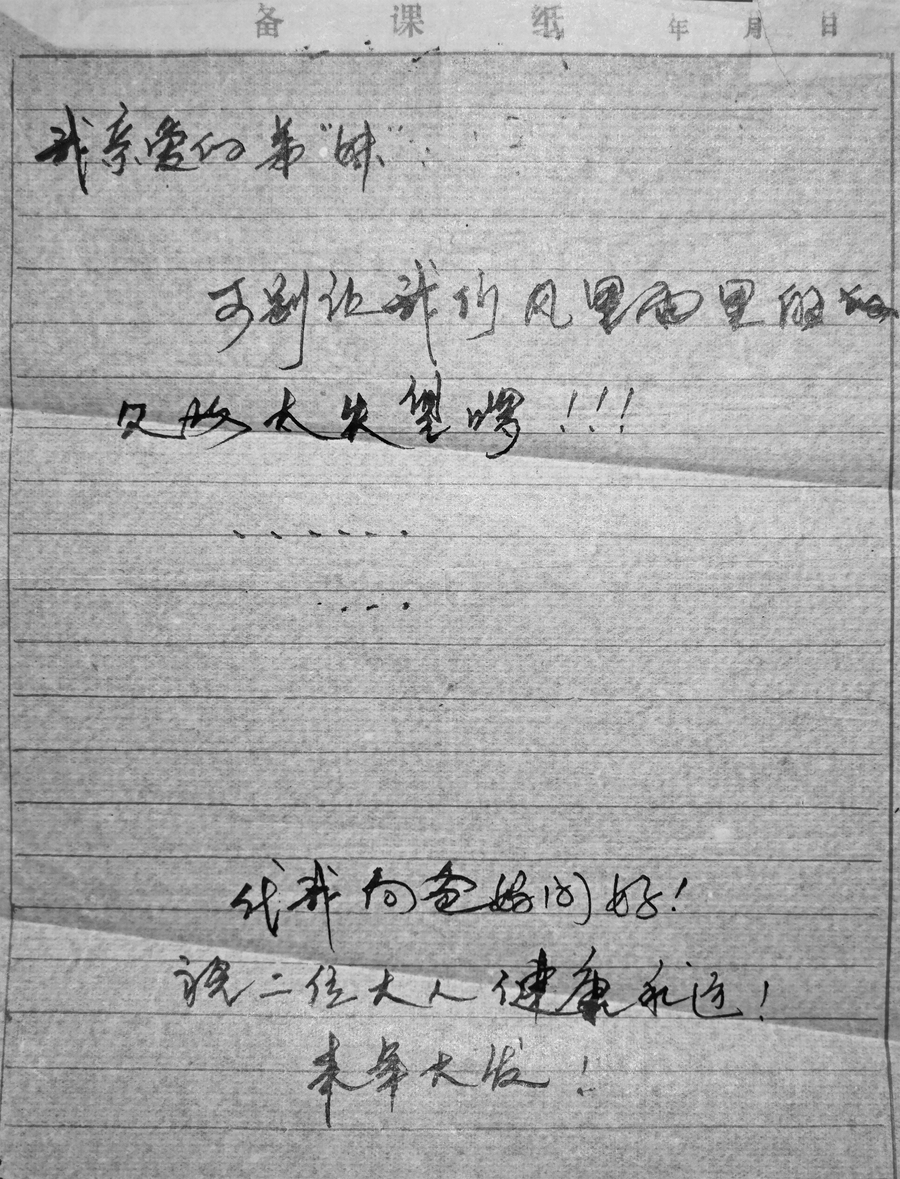 备课纸 年 月 日
我亲爱的弟“妹”:
可别让我们风里雨里的
父母太失望啰!!!
......
....
代我向爸妈问好!
说二位大人健康永远!
来年大发!